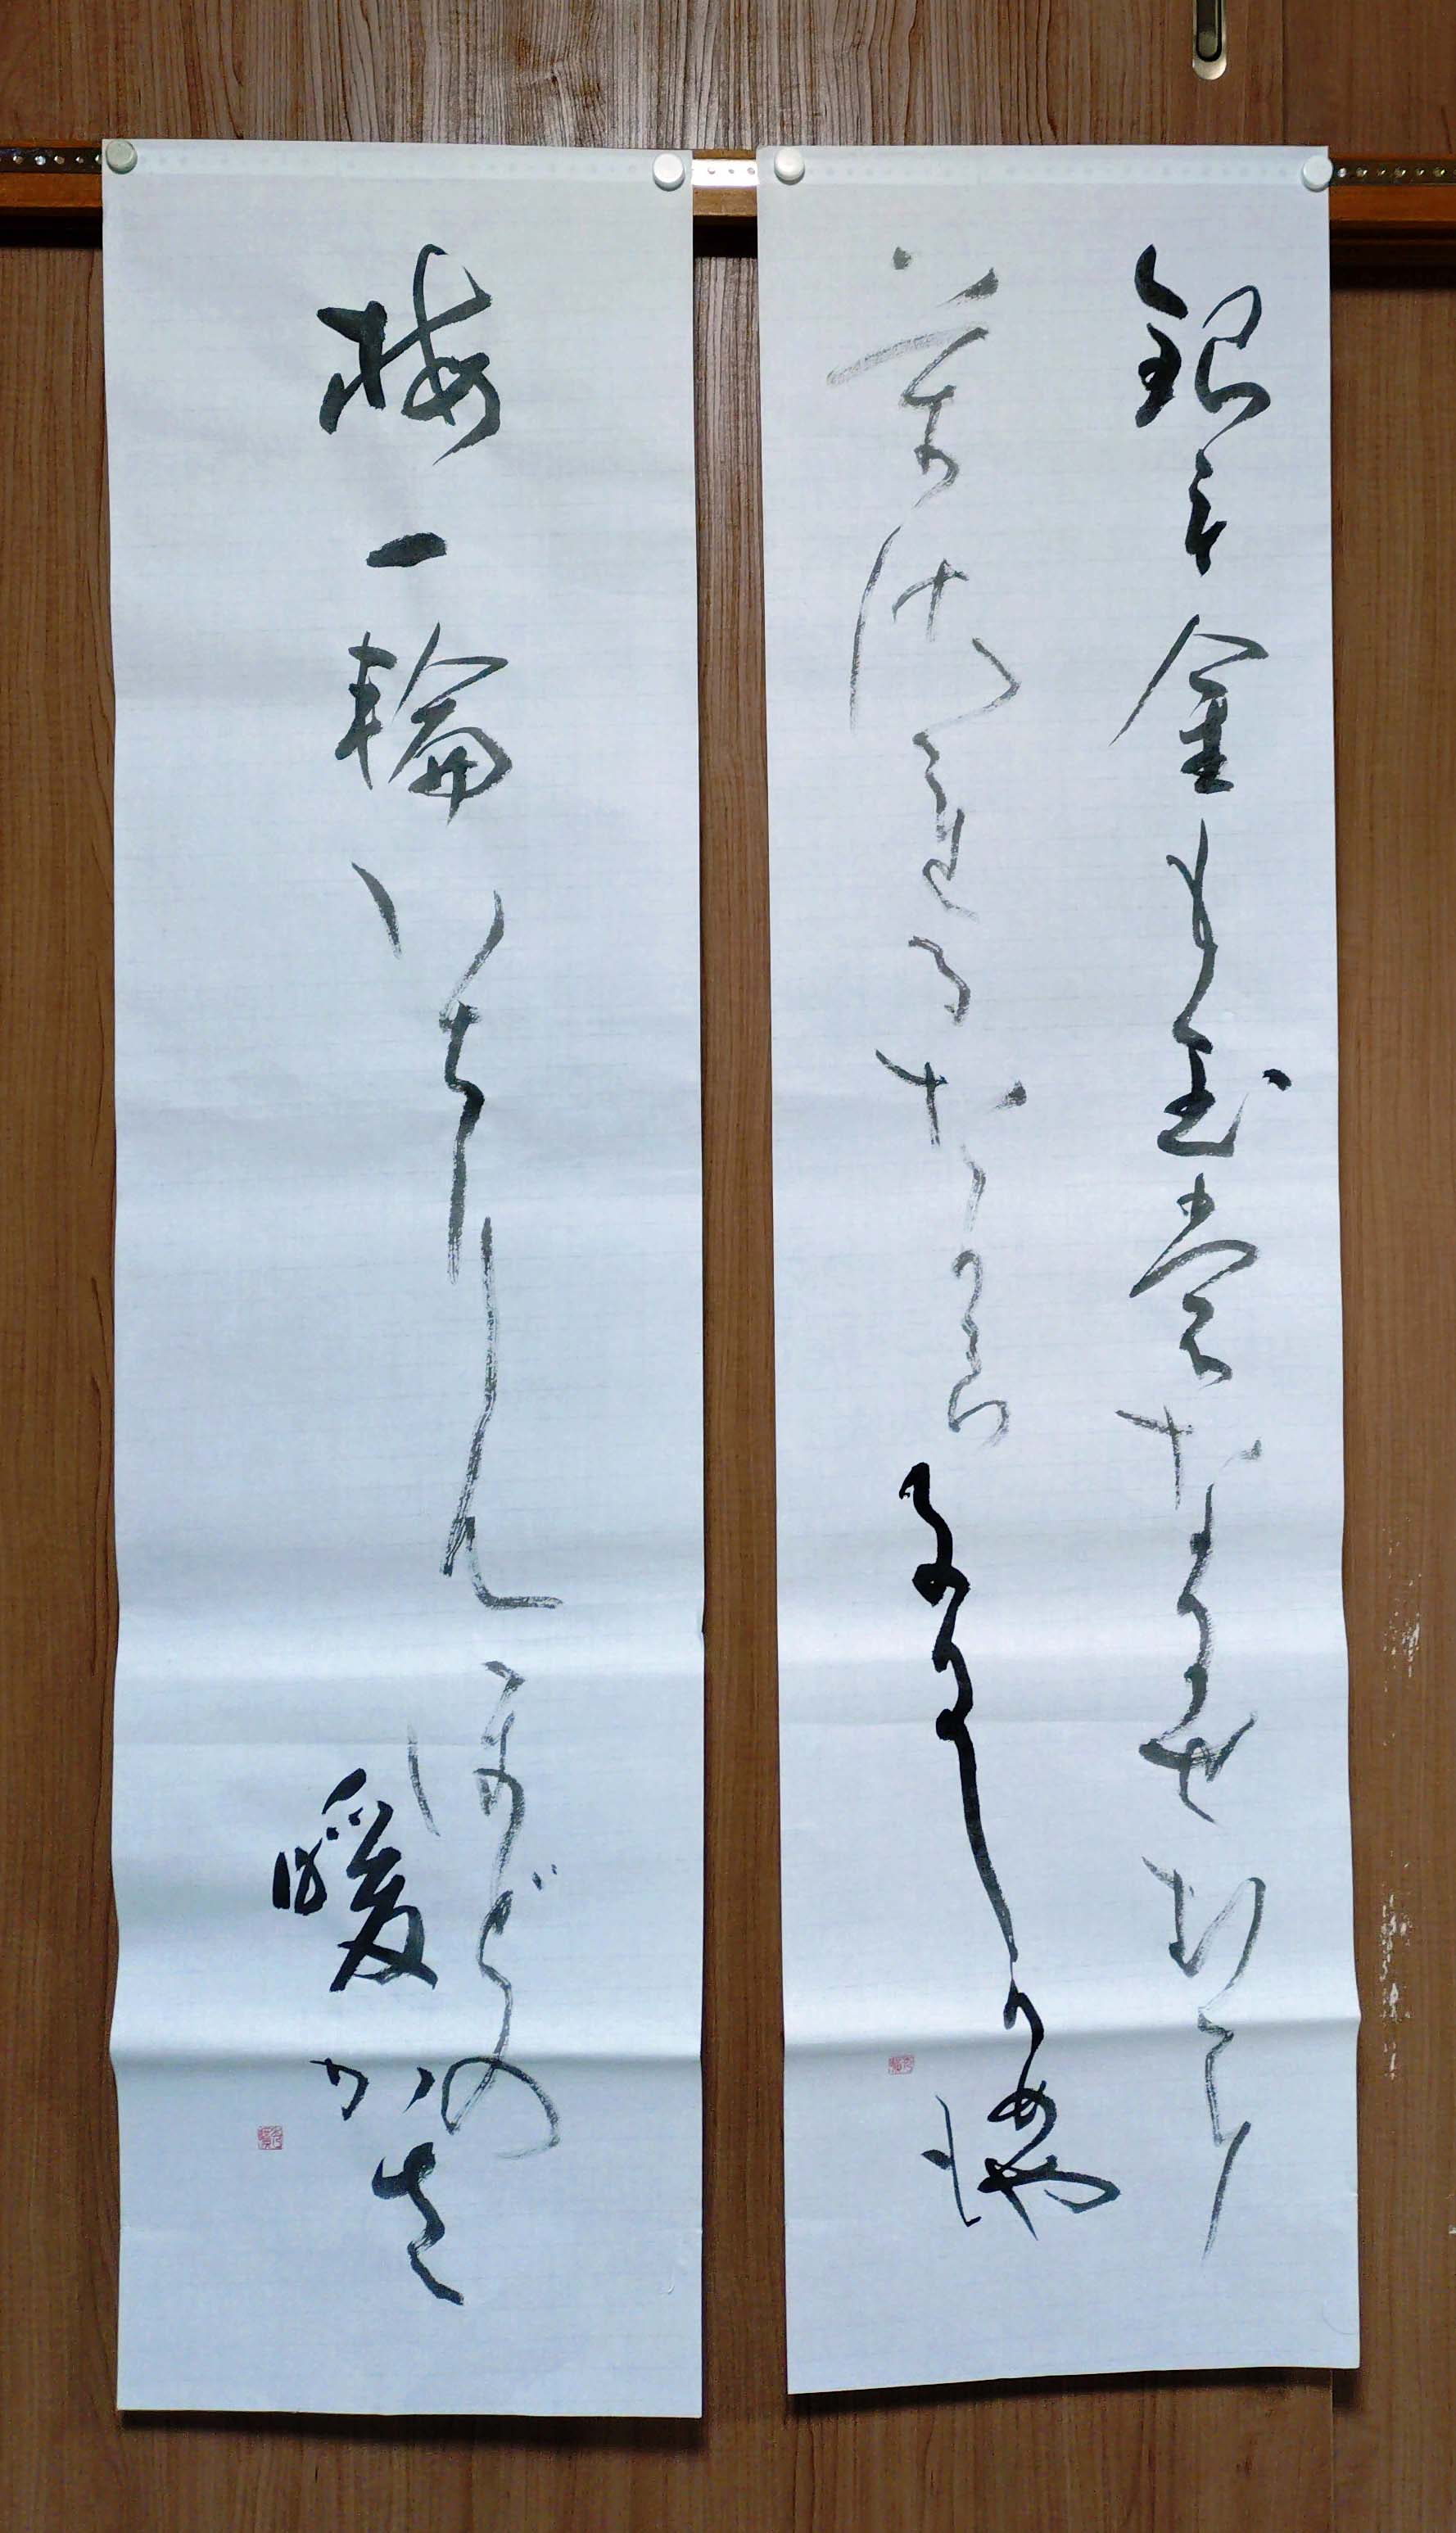 銀も金も玉もなにせむに
まされるたからこにしかめやも
梅一輪いちりんほどの
暖かさ